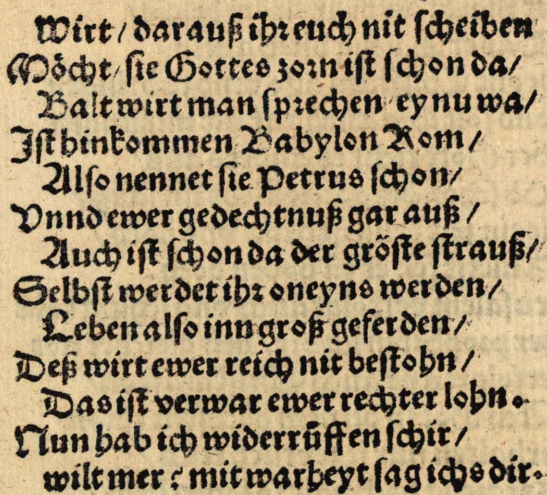 Wirt / darauß ihr euch nit scheiben
Möcht / sie Gottes zorn ist schon da /
Balt wirt man sprechen / ey nu wa /
Ist hinkommen Babylon Rom /
Also nennet sie Petrus schon /
Vnnd ewer gedechtnuß gar auß /
Auch ist schon da der gröste strauß /
Selbst werdet ihr oneyns werden /
Leben also inn groß geferden /
Deß wirt ewer reich nit bestohn /
Das ist verwar ewer rechter lohn.
Nun hab ich widerrüffen schir /
wilt mer ? mit warheyt sag ichs dir.